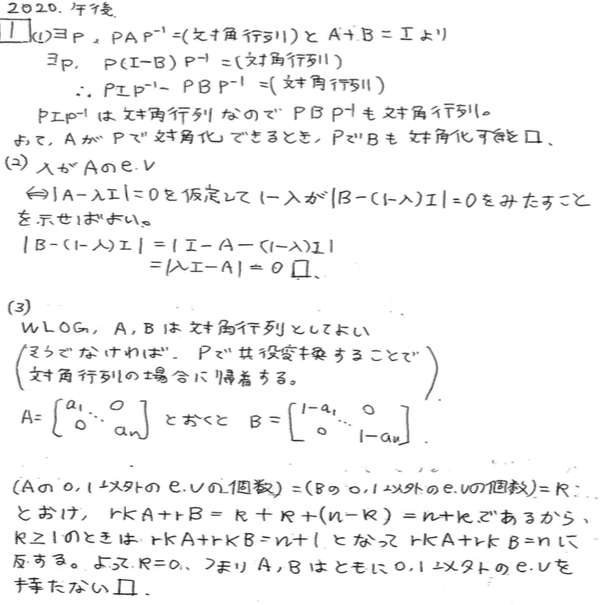 2020. 午後
1 (1) ∃P, PAP⁻¹=(対角行列)と A+B=Iより
∃P, P(I-B)P⁻¹=(対角行列)
∴ PIP⁻¹-PBP⁻¹=(対角行列)
PIP⁻¹は対角行列なのでPBP⁻¹も対角行列。
よって, AがPで対角化できるとき, PでBも対角化可能□.
(2) λがAのe.v
⇔|A-λI|=0を仮定して1-λが|B-(1-λ)I|=0をみたすこと
を示せばよい。
|B-(1-λ)I|=|I-A-(1-λ)I|
=|λI-A|=0□.
(3)
WLOG, A,Bは対角行列としてよい
(そうでなければ、Pで共役変換することで
対角行列の場合に帰着する。).
A=[a₁ ⋱ 0 0 aₙ]とおくと B=[1-a₁ ⋱ 0 0 1-aₙ].
(Aの0,1以外のe.vの個数)=(Bの0,1以外のe.vの個数)=k
とおけ, rkA+rB=k+k+(n-k)=n+kであるから、
k≥1のときはrkA+rkB=n+1となってrkA+rkB=nに
反する。よってk=0, つまりA,Bはともに0,1以外のe.vを
持たない□.